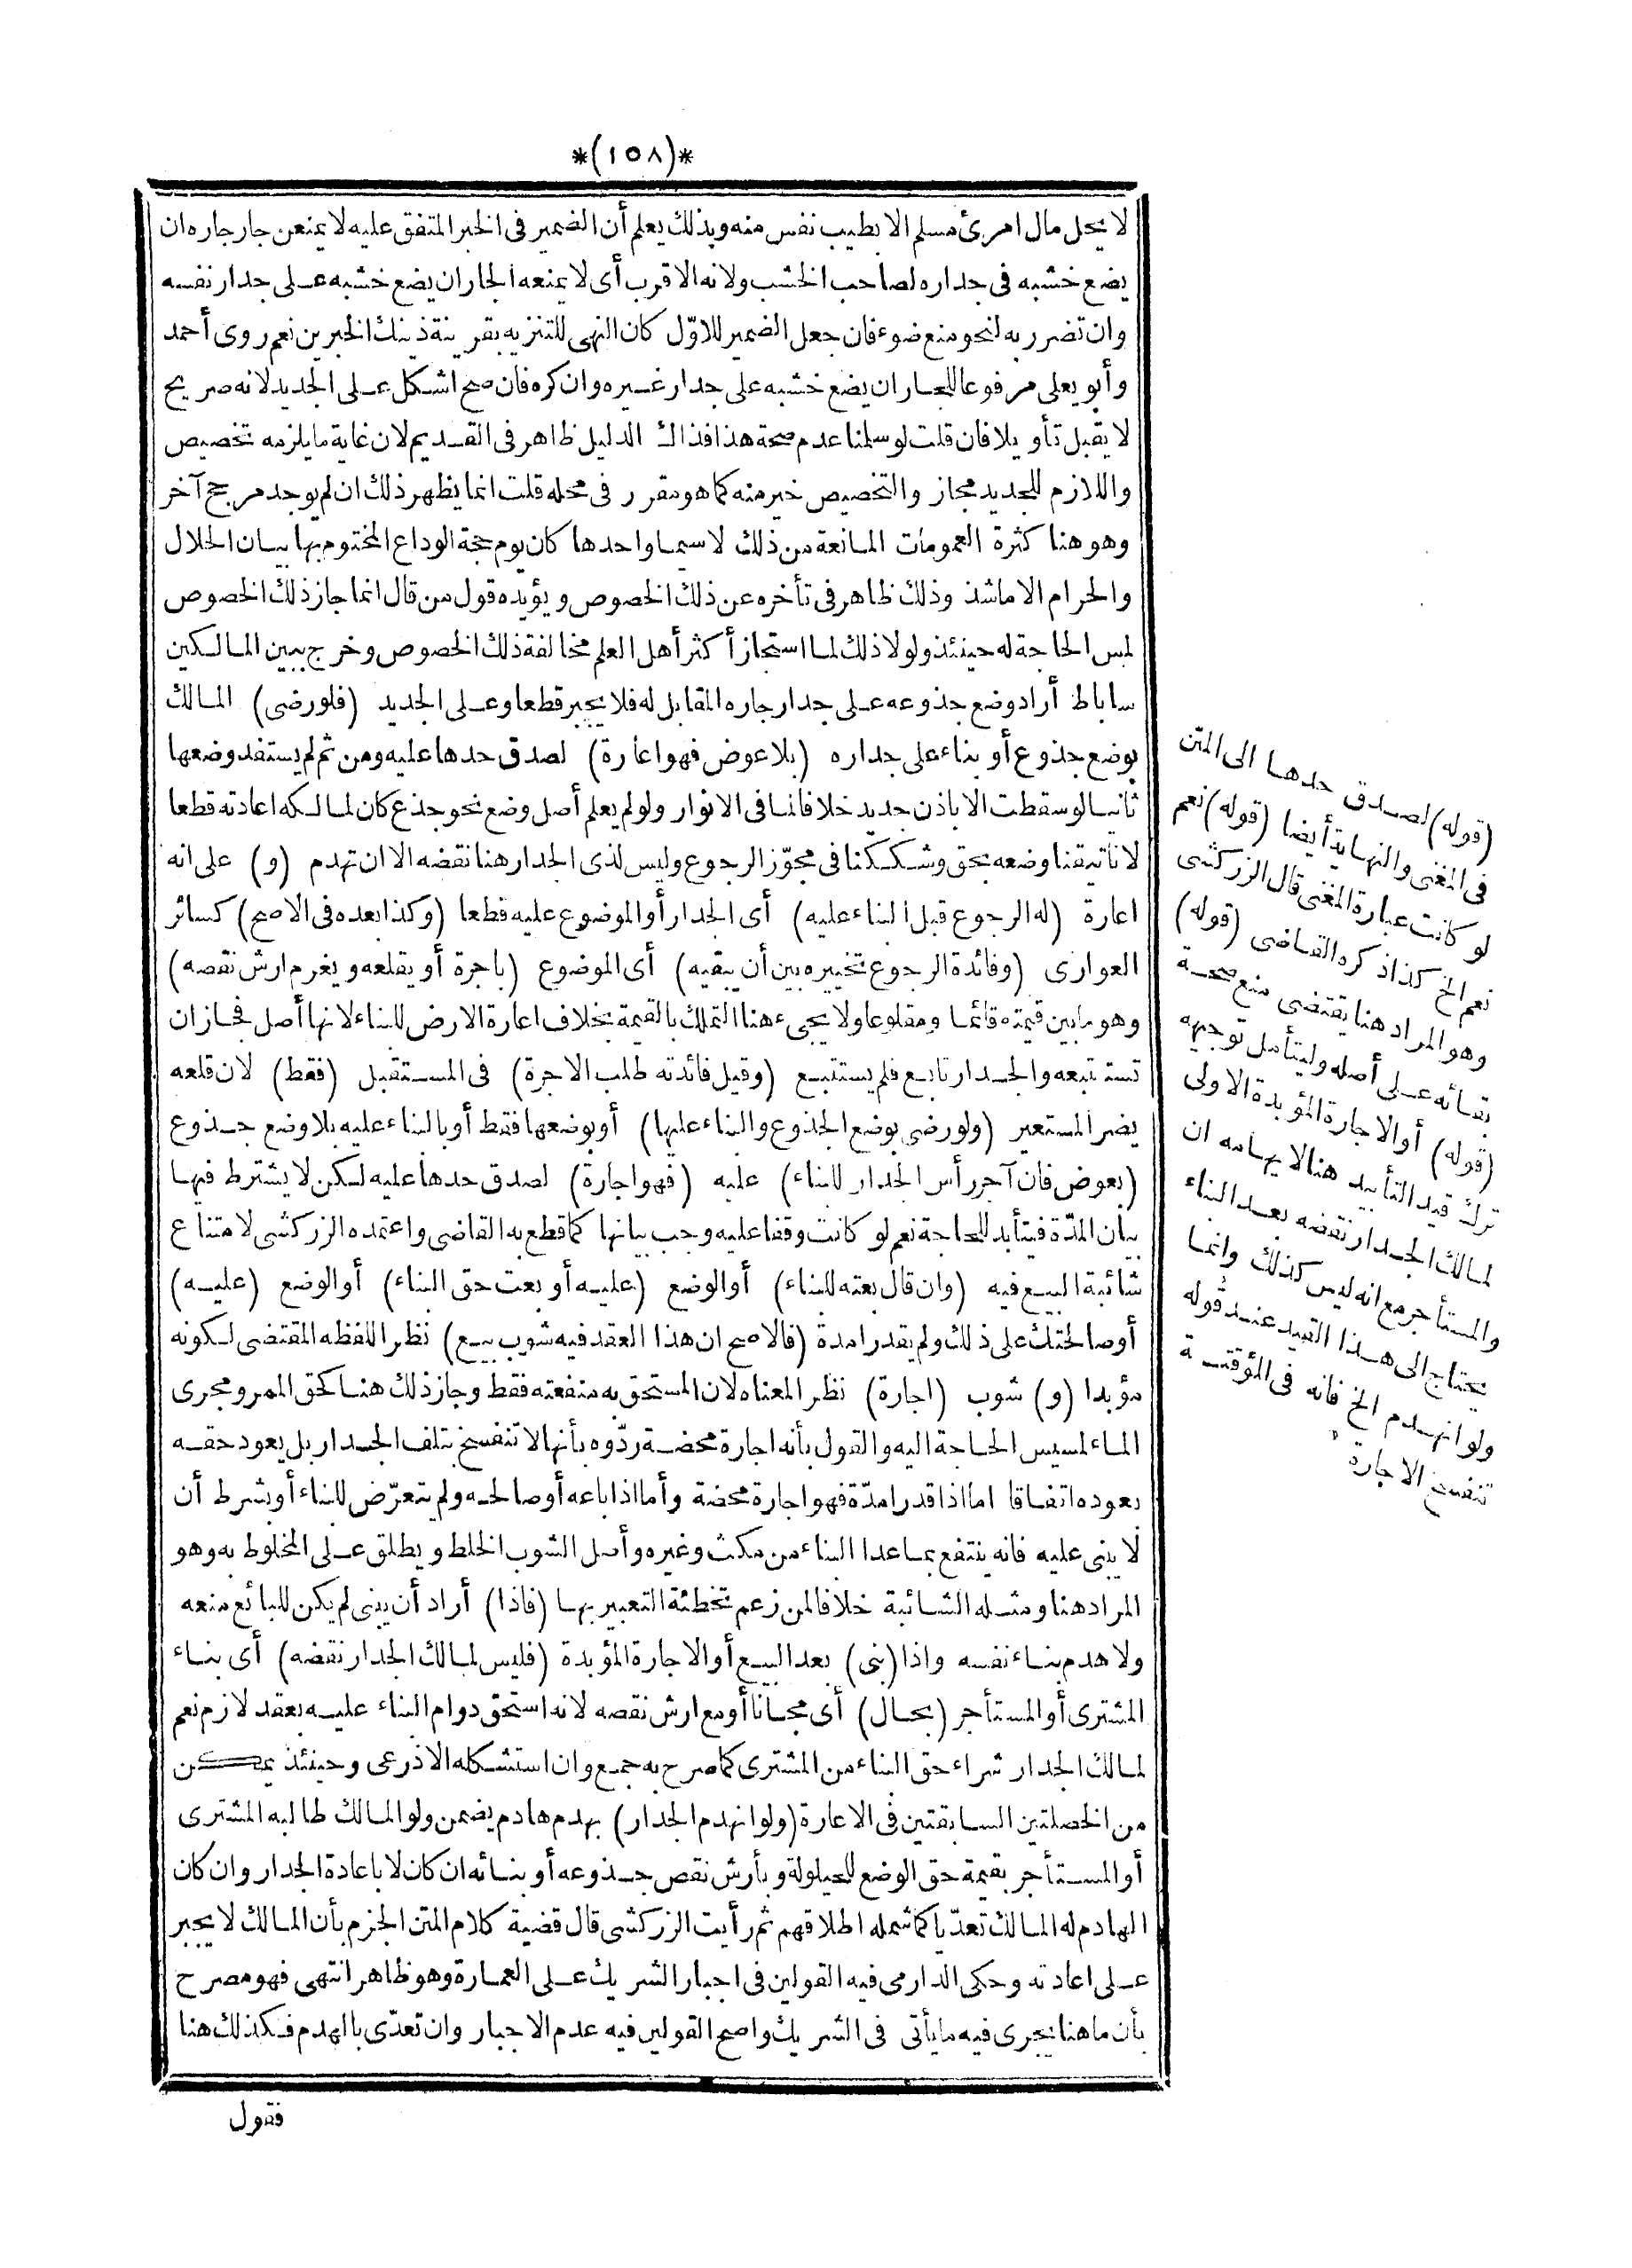 *(١٥٨)*
لا يحل مال امرئ مسلم الا بطيب نفس منه وبذلك يعلم أن الضمير فى الخبر المتفق عليه لا يمنعن جار جاره ان
يضع خشبه فى جداره لصاحب الخشب ولانه الاقرب أى لا يمنعه الجار ان يضع خشبه على جدار نفسه
وان تضرر به لنحو منع ضوء فان جعل الضمير للاوّل كان النهى للتنزيه بقرينة ذينك الخبرين نعم روى أحمد
وأبو يعلى مرفوعا للجار ان يضع خشبه على جدار غيره وان كره فان صح اشكل على الجديد لانه صريح
لا يقبل تأويلا فان قلت لو سلمنا عدم صحة هذا فذاك الدليل ظاهر فى القديم لان غاية ما يلزمه تخصيص
واللازم للجديد مجاز والتخصيص خير منه كما هو مقرر فى محله قلت انما يظهر ذلك ان لم يوجد مرجح آخر
وهو هنا كثرة العمومات المانعة من ذلك لا سيما واحدها كان يوم حجة الوداع المختوم بها بيان الحلال
والحرام الا ما شذ وذلك ظاهر فى تأخره عن ذلك الخصوص ويؤيده قول من قال انما جاز ذلك الخصوص
لمس الحاجة له حينئذ ولولا ذلك لما استجاز أكثر أهل العلم مخالفة ذلك الخصوص وخرج ببين المالكين
ساباط أراد وضع جذوعه على جدار جاره المقابل له فلا يجبر قطعا وعلى الجديد (فلو رضى) المالك
بوضع جذوع أو بناء على جداره (بلا عوض فهو اعارة) لصدق حدها عليه ومن ثم لم يستفد وضعها
ثانيا لو سقطت الا باذن جديد خلافا لما فى الانوار ولو لم يعلم أصل وضع نحو جذع كان لمالكه اعادته قطعا
لانا تيقنا وضعه بحق وشككنا فى مجوّز الرجوع وليس لذى الجدار هنا نقضه الا ان تهدم (و) على انه
اعارة (له الرجوع قبل البناء عليه) أى الجدار أو الموضوع عليه قطعا (وكذا بعده فى الاصح) كسائر
العوارى (وفائدة الرجوع تخييره بين أن يبقيه) أى الموضوع (باجرة أو يقلعه ويغرم ارش نقصه)
وهو ما بين قيمته قائما ومقلوعا ولا يجىء هنا التملك بالقيمة بخلاف اعارة الارض للبناء لانها أصل فجاز ان
تستتبعه والجدار تابع فلم يستتبع (وقيل فائدته طلب الاجرة) فى المستقبل (فقط) لان قلعه
يضر المستعير (ولو رضى بوضع الجذوع والبناء عليها) أو بوضعها فقط أو بالبناء عليه بلا وضع جذوع
(بعوض فان آجر رأس الجدار للبناء) عليه (فهو اجارة) لصدق حدها عليه لكن لا يشترط فيها
بيان المدّة فيتأبد للحاجة نعم لو كانت وقفا عليه وجب بيانها كما قطع به القاضى واعتمده الزركشى لامتناع
شائبة البيع فيه (وان قال بعته للبناء) أو الوضع (عليه أو بعت حق البناء) أو الوضع (عليه)
أو صالحتك على ذلك ولم يقدرا مدة (فالاصح ان هذا العقد فيه شوب بيع) نظرا للفظه المقتضى لكونه
مؤبدا (و) شوب (اجارة) نظرا لمعناه لان المستحق به منفعته فقط وجاز ذلك هنا كحق الممر ومجرى
الماء لمسيس الحاجة اليه والقول بأنه اجارة محضة ردّوه بأنها لا تنفسخ بتلف الجدار بل يعود حقه
بعوده اتفاقا اما اذا قدرا مدّة فهو اجارة محضة وأما اذا باعه أو صالحه ولم يتعرّض للبناء أو بشرط أن
لا يبنى عليه فانه ينتفع بما عدا البناء من مكث وغيره وأصل الشوب الخلط ويطلق على المخلوط به وهو
المراد هنا ومثله الشائبة خلافا لمن زعم تخطئة التعبير بها (فاذا) أراد أن يبنى لم يكن للبائع منعه
ولا هدم بناء نفسه واذا (بنى) بعد البيع أو الاجارة المؤبدة (فليس لمالك الجدار نقضه) أى بناء
المشترى أو المستأجر (بحال) أى مجانا أو مع ارش نقصه لانه استحق دوام البناء عليه بعقد لازم نعم
لمالك الجدار شراء حق البناء من المشترى كما صرح به جمع وان استشكله الاذرعى وحينئذ يمكن
من الخصلتين السابقتين فى الاعارة (ولو انهدم الجدار) بهدم هادم يضمن ولو المالك طالبه المشترى
أو المستأجر بقيمة حق الوضع للحيلولة وبأرش نقص جذوعه أو بنائه ان كان لا باعادة الجدار وان كان
الهادم له المالك تعدّيا كما شمله اطلاقهم ثم رأيت الزركشى قال قضية كلام المتن الجزم بأن المالك لا يجبر
على اعادته وحكى الدارمى فيه القولين فى اجبار الشريك على العمارة وهو ظاهر انتهى فهو مصرح
بأن ما هنا يجرى فيه ما يأتى فى الشريك واصح القولين فيه عدم الاجبار وان تعدّى بالهدم فكذلك هنا
فقول
(قوله) لصدق حدها الى المتن
فى المغنى والنهاية أيضا (قوله) نعم
لو كانت عبارة المغنى قال الزركشى
نعم الخ كذا ذكره القاضى (قوله)
وهو المراد هنا يقتضى منع صحة
بقائه على أصله وليتأمل توجيهه
(قوله) أو الاجارة المؤبدة الاولى
ترك قيد التأبيد هنا لايهامه ان
لمالك الجدار نقضه بعد البناء
والمستأجر مع انه ليس كذلك وانما
يحتاج الى هذا القيد عند قوله
ولو انهدم الخ فانه فى المؤقتة
تنفسخ الاجارة